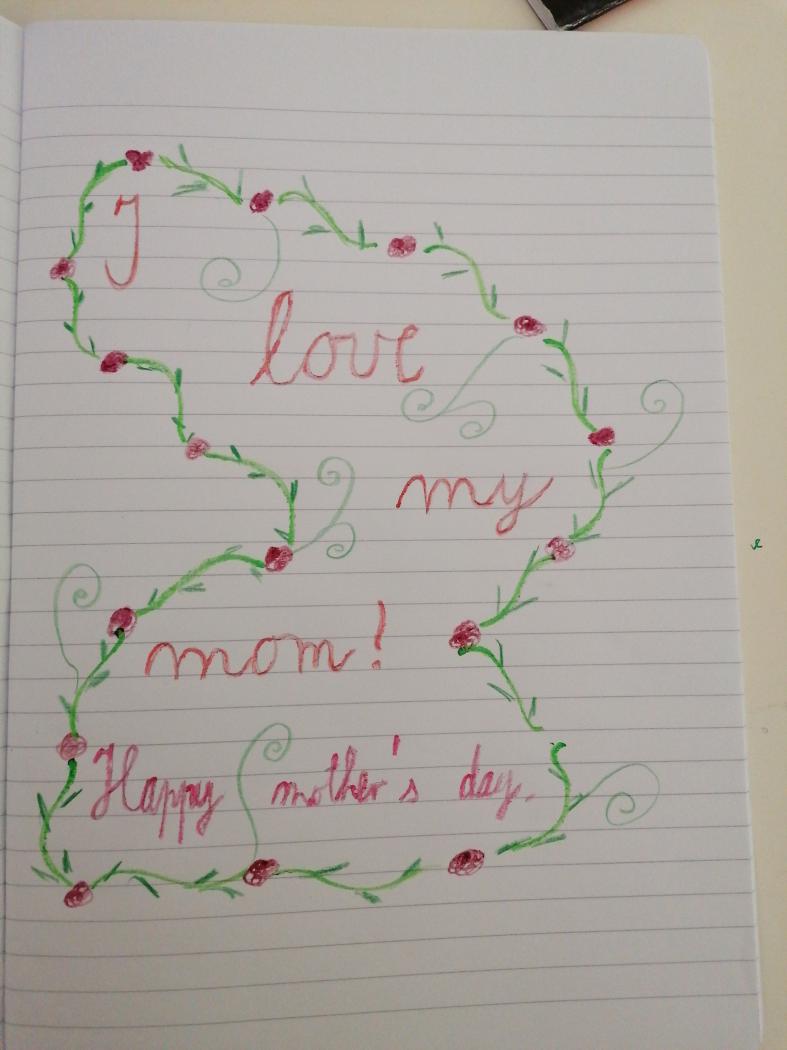 I
love
my
mom!
Happy mother's day.